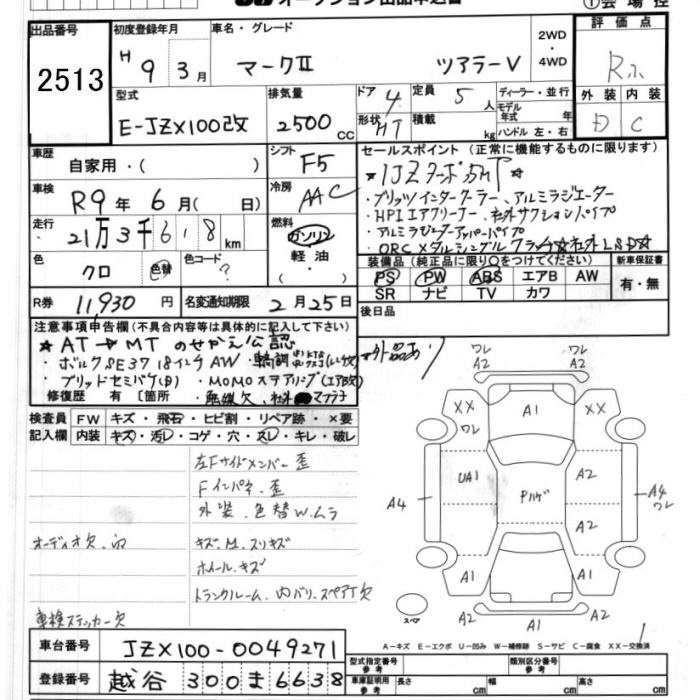 オークション出品申込書
①会場控
出品番号 初度登録年月 車名・グレード 2WD・4WD 評価点
2513 H 9 3月 マークⅡ ツアラーV R
型式 排気量 ドア 4 定員 5 人 ディーラー・並行 外装 内装
E-JZX100改 2500 CC 形状 HT 積載 kg モデル年式 年 ハンドル 左・右 D C
車歴 自家用・( ) シフト F5 セールスポイント (正常に機能するものに限ります)
★1JZターボ5MT★
車検 R9年 6月( 日) 冷房 AAC
・ブリッツインタークーラー、アルミラジエーター
・HPIエアクリーナー、社外サクションパイプ
走行 21万3千618km 燃料 ガソリン 軽油
・アルミラジエーターアッパーパイプ
・ORCメタルシングルクラッチ★社外LSD★
色 クロ 色替 色コード ?
装備品 (純正品に限り○をつけてください) 新車保証書
PS PW ABS エアB AW 有・無
SR ナビ TV カワ
R券 11,930円 名変通知期限 2月25日 後日品
注意事項申告欄 (不具合内容等は具体的に記入して下さい)
★AT→MTのせかえ公認
・ボルクSE37 18インチAW・車高調
・ブリッドセミバケ(D)・MOMOステアリング(エアB欠)
修復歴 有〔箇所 ・無線欠・社外マフラー
外品あり
検査員記入欄 FW キズ・飛石・ヒビ割・リペア跡・×要
内装 キズ・汚レ・コゲ・穴・スレ・キレ・破レ
左Fサイドメンバー歪
Fインパネ歪
外装色替Wムラ
オーディオ欠 キズ、M、スリキズ
ホイールキズ
トランクルーム内バリ、スペアT欠
車検ステッカー欠
ワレ A2 ワレ A2
XX ワレ A1 XX
UA1 Pハゲ A2
A4 A2 A4 ワレ
A1 A1
スペア A2 A1 A2
A-キズ E-エクボ U-凹み W-補修跡 S-サビ C-腐食 XX-交換済
車台番号 JZX100-0049271
型式指定番号 参考 類別区分番号 参考
登録番号 越谷 300 ま 6638
車庫証明用 参考 長さ cm 幅 cm 高さ cm